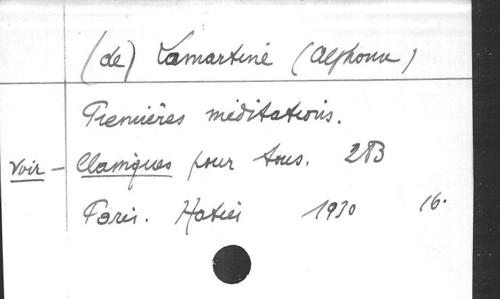 (de) Lamartine (Alphonse)
Premières méditations.
Voir – Classiques pour tous. 283
Paris. Hatier 1930 16.